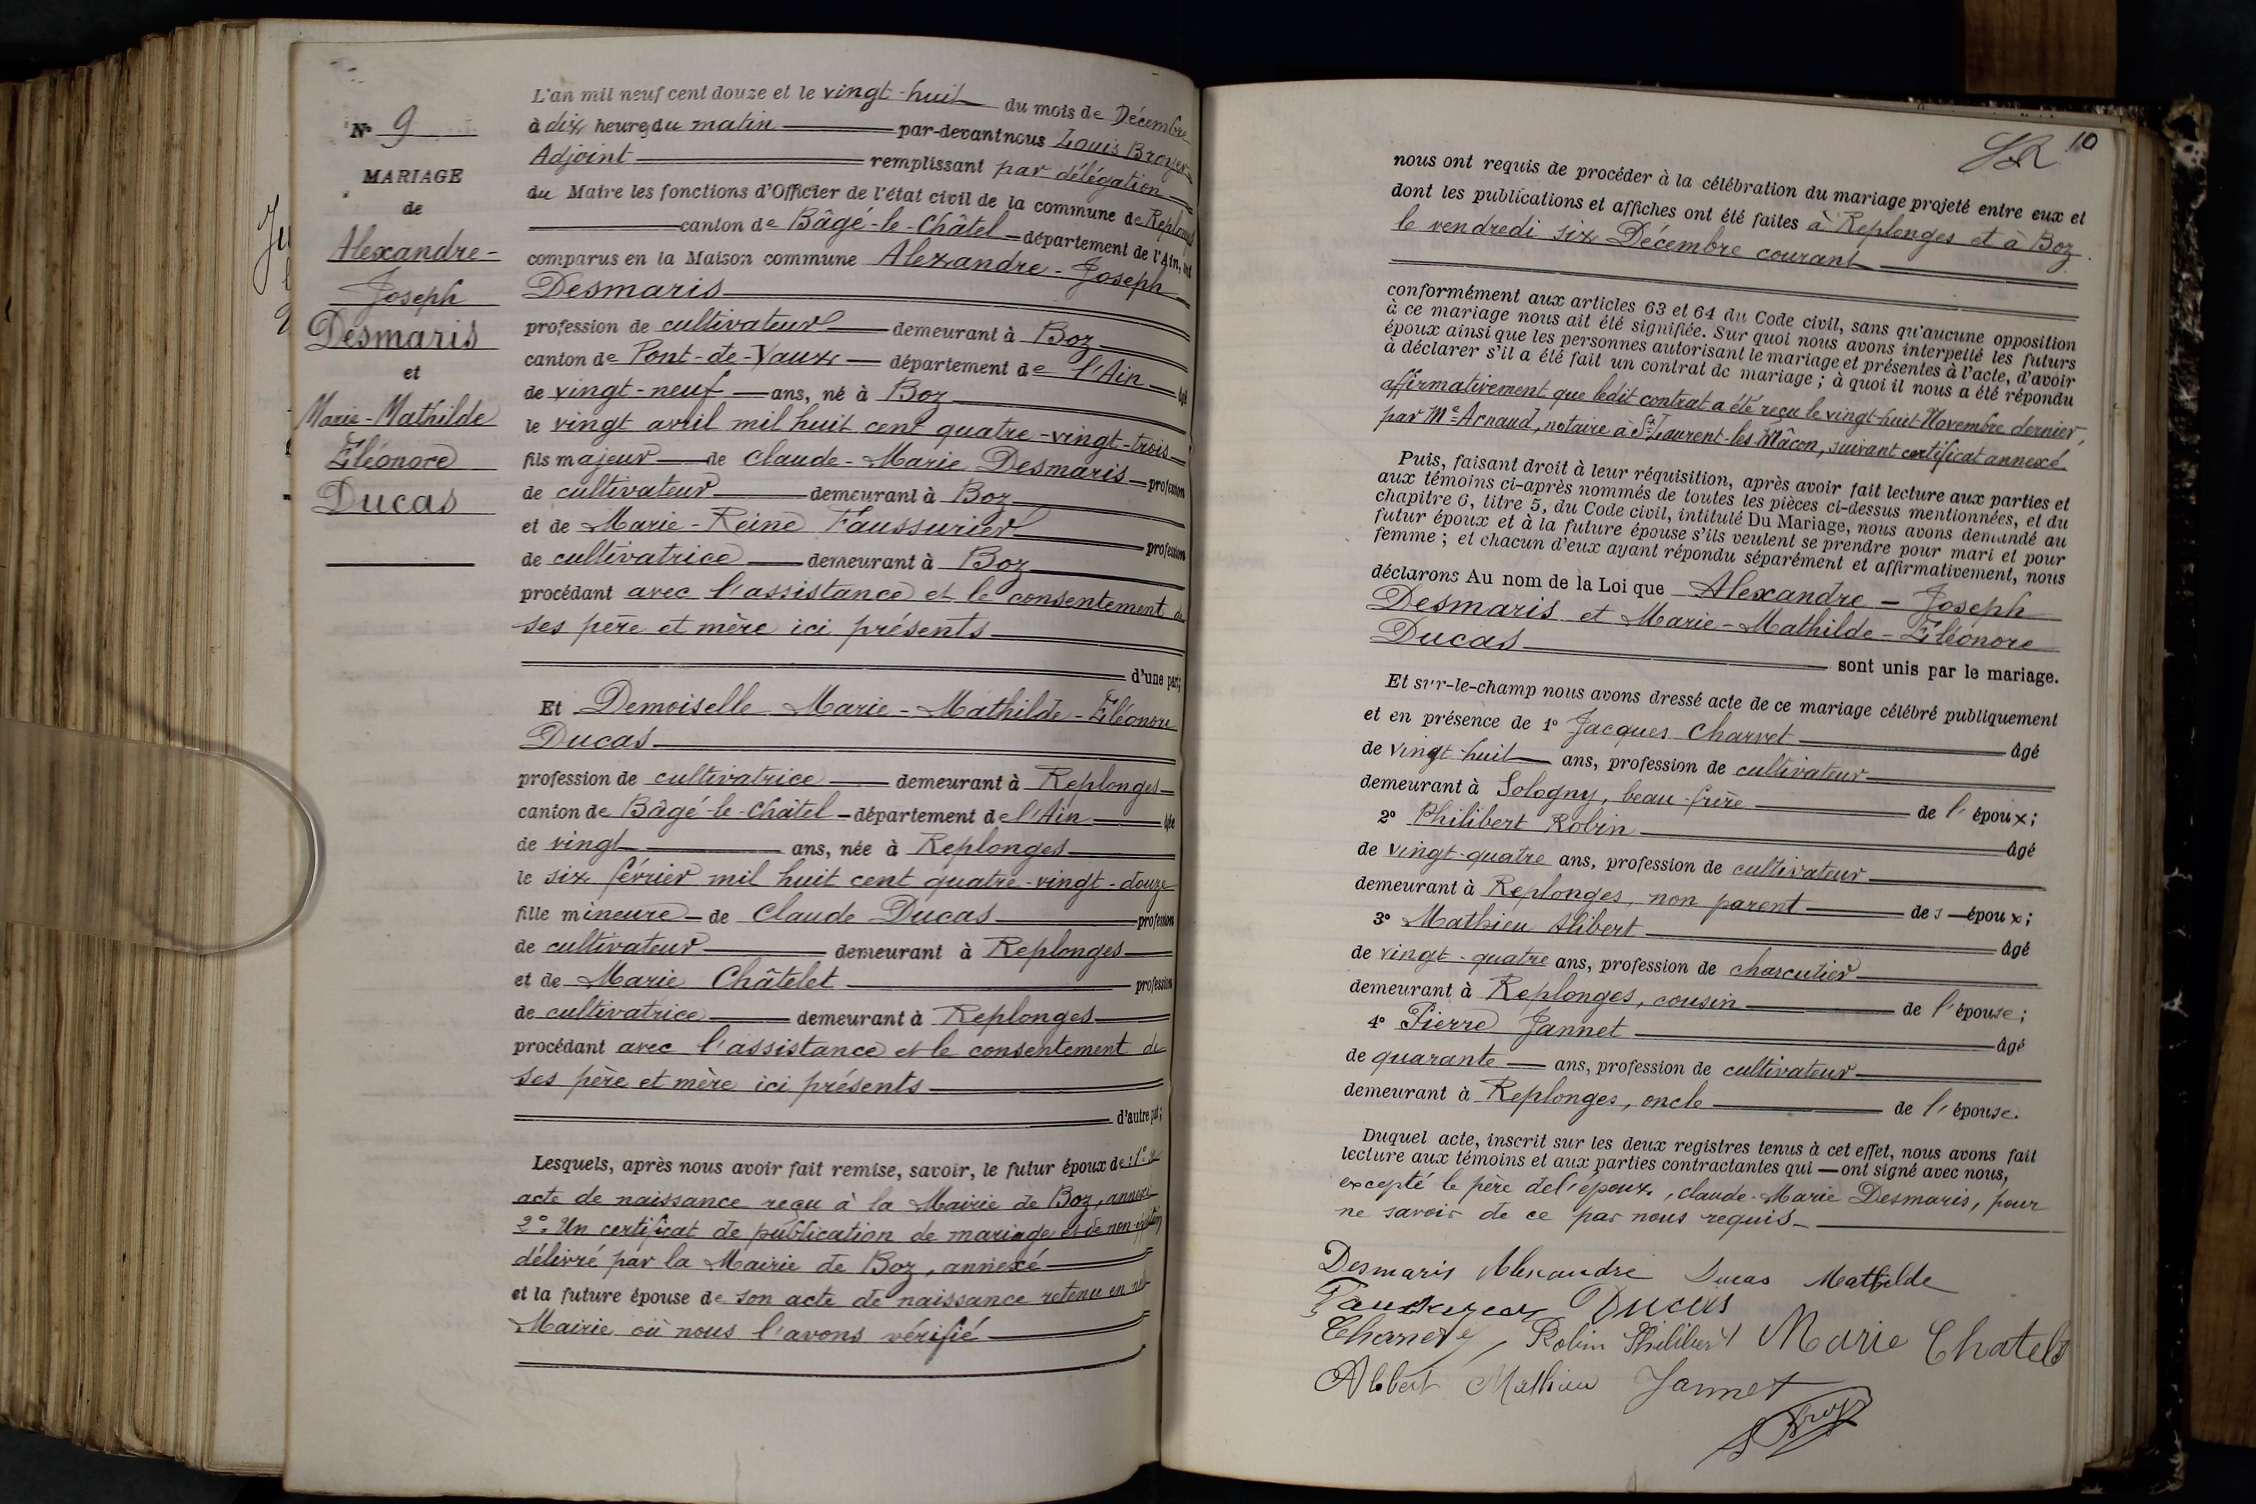 N° 9
MARIAGE
de
Alexandre-
Joseph
Desmaris
et
Marie-Mathilde
Eléonore
Ducas
L'an mil neuf cent douze et le vingt-huit du mois de Décembre
à dix heures du matin par-devant nous Louis Broyer
Adjoint remplissant par délégation
du Maire les fonctions d'Officier de l'état civil de la commune de Replonges
canton de Bâgé-le-Châtel département de l'Ain, ont
comparus en la Maison commune Alexandre-Joseph
Desmaris
profession de cultivateur demeurant à Boz
canton de Pont-de-Vaux département de l'Ain âgé
de vingt-neuf ans, né à Boz
le vingt avril mil huit cent quatre-vingt-trois
fils majeur de Claude-Marie Desmaris profession
de cultivateur demeurant à Boz
et de Marie-Reine Faussurier profession
de cultivatrice demeurant à Boz
procédant avec l'assistance et le consentement de
ses père et mère ici présents
d'une part;
Et Demoiselle Marie-Mathilde-Eléonore
Ducas
profession de cultivatrice demeurant à Replonges
canton de Bâgé-le-Châtel département de l'Ain âgée
de vingt ans, née à Replonges
le six février mil huit cent quatre-vingt-douze
fille mineure de Claude Ducas profession
de cultivateur demeurant à Replonges
et de Marie Châtelet profession
de cultivatrice demeurant à Replonges
procédant avec l'assistance et le consentement de
ses père et mère ici présents
d'autre part;
Lesquels, après nous avoir fait remise, savoir, le futur époux de: 1°
acte de naissance reçu à la Mairie de Boz, annexé
2°. Un certificat de publication de mariage et de non opposition
délivré par la Mairie de Boz, annexé
et la future épouse de son acte de naissance retenu en
Mairie où nous l'avons vérifié
10
nous ont requis de procéder à la célébration du mariage projeté entre eux et
dont les publications et affiches ont été faites à Replonges et à Boz
le vendredi six Décembre courant
conformément aux articles 63 et 64 du Code civil, sans qu'aucune opposition
à ce mariage nous ait été signifiée. Sur quoi nous avons interpellé les futurs
époux ainsi que les personnes autorisant le mariage et présentes à l'acte, d'avoir
à déclarer s'il a été fait un contrat de mariage; à quoi il nous a été répondu
affirmativement que ledit contrat a été reçu le vingt-huit Novembre dernier,
par Me Arnaud, notaire à St Laurent-lès-Mâcon, suivant certificat annexé
Puis, faisant droit à leur réquisition, après avoir fait lecture aux parties et
aux témoins ci-après nommés de toutes les pièces ci-dessus mentionnées, et du
chapitre 6, titre 5, du Code civil, intitulé Du Mariage, nous avons demandé au
futur époux et à la future épouse s'ils veulent se prendre pour mari et pour
femme; et chacun d'eux ayant répondu séparément et affirmativement, nous
déclarons Au nom de la Loi que Alexandre-Joseph
Desmaris et Marie-Mathilde-Eléonore
Ducas
sont unis par le mariage.
Et sur-le-champ nous avons dressé acte de ce mariage célébré publiquement
et en présence de 1° Jacques Charvet âgé
de vingt-huit ans, profession de cultivateur
demeurant à Sologny, beau-frère de l'époux;
2° Philibert Robin âgé
de vingt-quatre ans, profession de cultivateur
demeurant à Replonges, non parent des époux;
3° Mathieu Alibert âgé
de vingt-quatre ans, profession de charcutier
demeurant à Replonges, cousin de l'épouse;
4° Pierre Jannet âgé
de quarante ans, profession de cultivateur
demeurant à Replonges, oncle de l'épouse.
Duquel acte, inscrit sur les deux registres tenus à cet effet, nous avons fait
lecture aux témoins et aux parties contractantes qui ont signé avec nous,
excepté le père de l'époux, Claude-Marie Desmaris, pour
ne savoir de ce par nous requis
Desmaris Alexandre Ducas Mathilde
Ducas
Robin Philibert Marie Chatelet
Alibert Mathieu Jannet